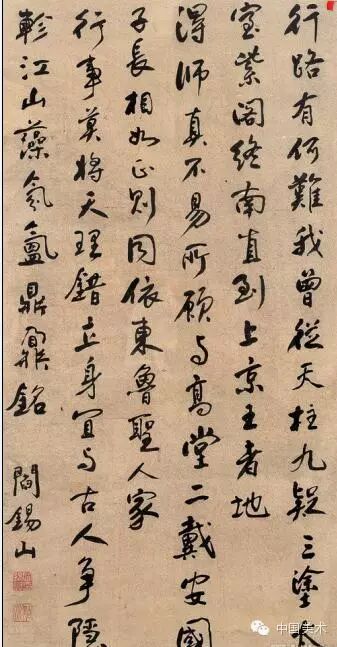 行路有何難我曾從天柱九疑三塗太
室紫閣終南直到上京王者地
得師真不易所願与高堂二戴安國
子長相如正則同依東魯聖人家
行事莫將天理錯立身宜与古人爭隱
軫江山藻氛氳鼎鼐銘
閻錫山
中国美术